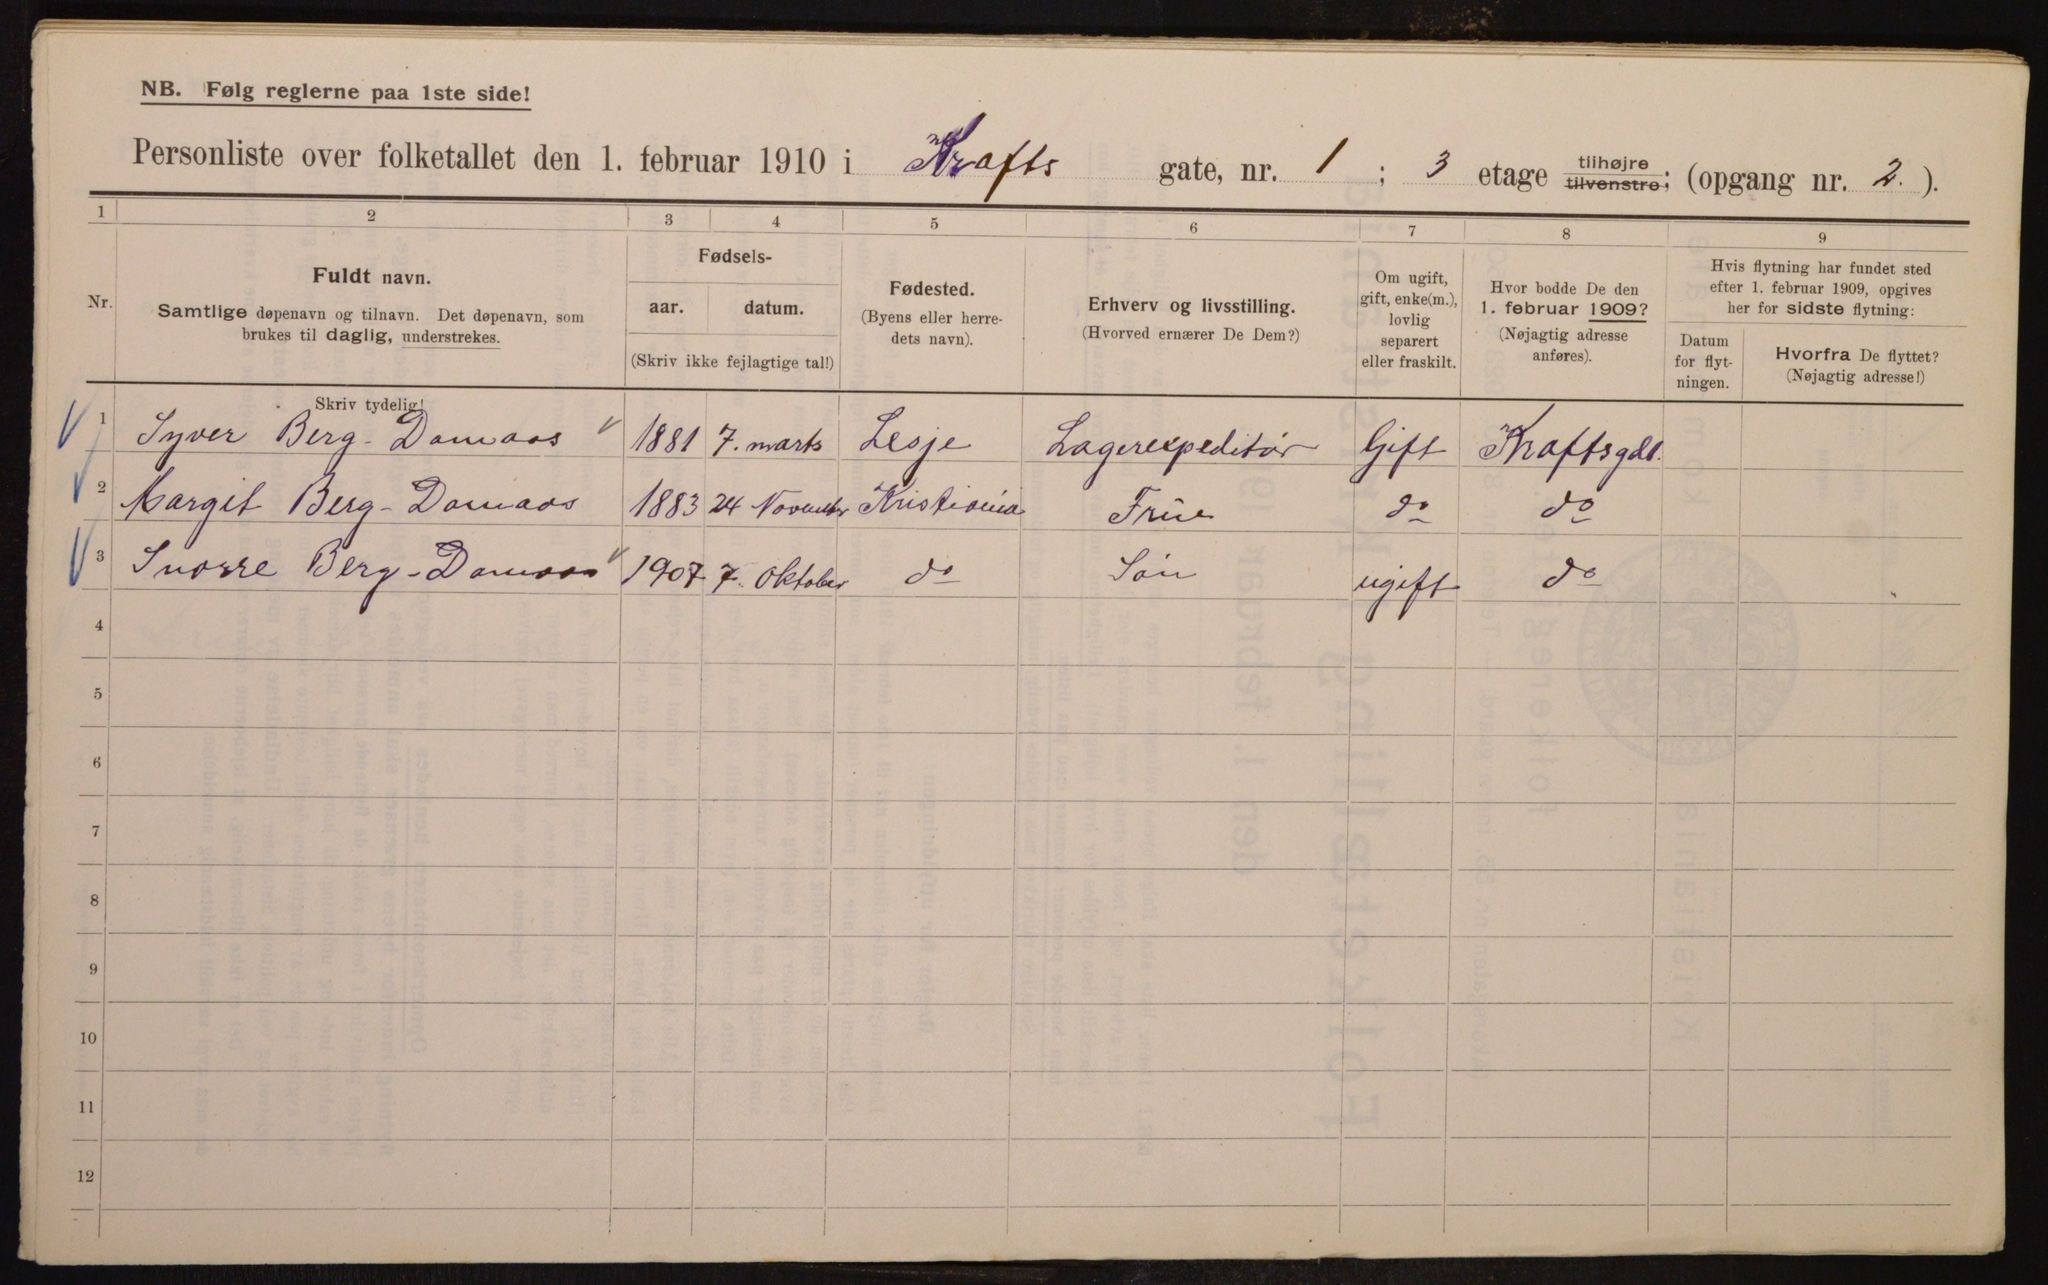 NB. Følg reglerne paa 1ste side!
Personliste over folketallet den 1. februar 1910 i Krafts gate, nr. 1 ; 3 etage tilhøjre tilvenstre; (opgang nr. 2. ).
1 2 3 4 5 6 7 8 9
Nr. Fuldt navn. Samtlige døpenavn og tilnavn. Det døpenavn, som brukes til daglig, understrekes. Skriv tydelig!
Fødsels-
aar. datum.
(Skriv ikke fejlagtige tal!)
Fødested.
(Byens eller herre-
dets navn).
Erhverv og livsstilling.
(Hvorved ernærer De Dem?)
Om ugift,
gift, enke(m.),
lovlig
separert
eller fraskilt.
Hvor bodde De den
1. februar 1909?
(Nøjagtig adresse
anføres).
Hvis flytning har fundet sted
efter 1. februar 1909, opgives
her for sidste flytning:
Datum
for flyt-
ningen.
Hvorfra De flyttet?
(Nøjagtig adresse!)
1 Syver Berg-Domaas 1881 7. marts Lesje Lagerexpeditör Gift Kraftsgdt.
2 Margit Berg-Domaas 1883 24 November Kristiania Frue do do
3 Snorre Berg-Domaas 1907 7. Oktober do Sön ugift do
4
5
6
7
8
9
10
11
12